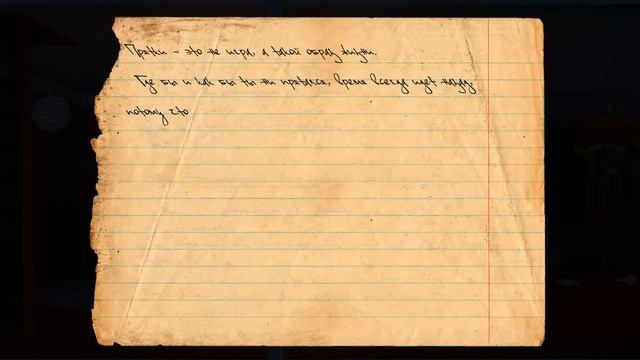 Прятки - это не игра, а такой образ жизни.
Где бы и как бы ты ни прятался, время всегда идет назад,
потому что